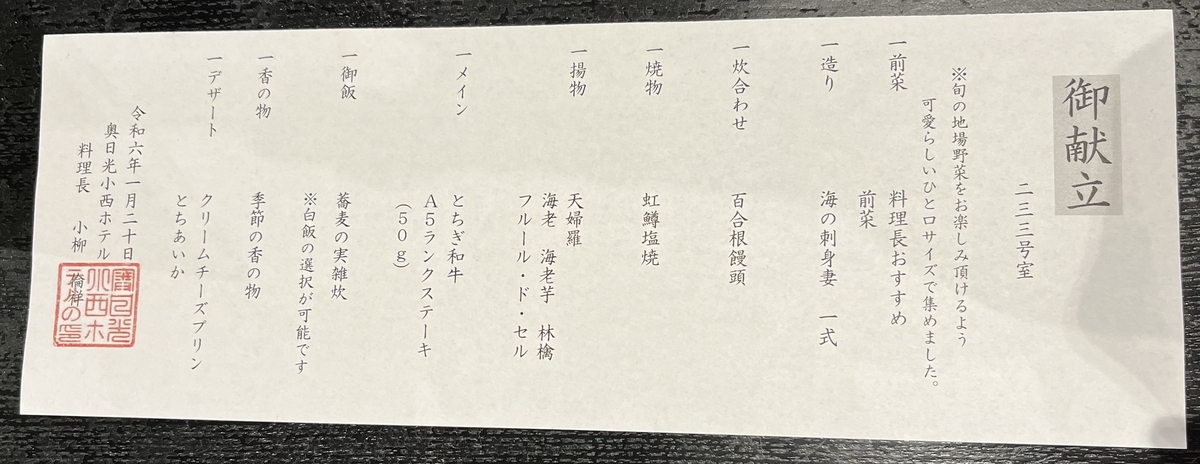 御献立
二三三号室
※旬の地場野菜をお楽しみ頂けるよう
可愛らしいひと口サイズで集めました。
一 前菜 料理長おすすめ
前菜
一 造り 海の刺身妻 一式
一 炊合わせ 百合根饅頭
一 焼物 虹鱒塩焼
一 揚物 天婦羅
海老 海老芋 林檎
フルール・ド・セル
一 メイン とちぎ和牛
A5ランクステーキ
(50g)
一 御飯 蕎麦の実雑炊
※白飯の選択が可能です
一 香の物 季節の香の物
一 デザート クリームチーズプリン
とちあいか
令和六年一月二十日
奥日光小西ホテル
料理長 小柳